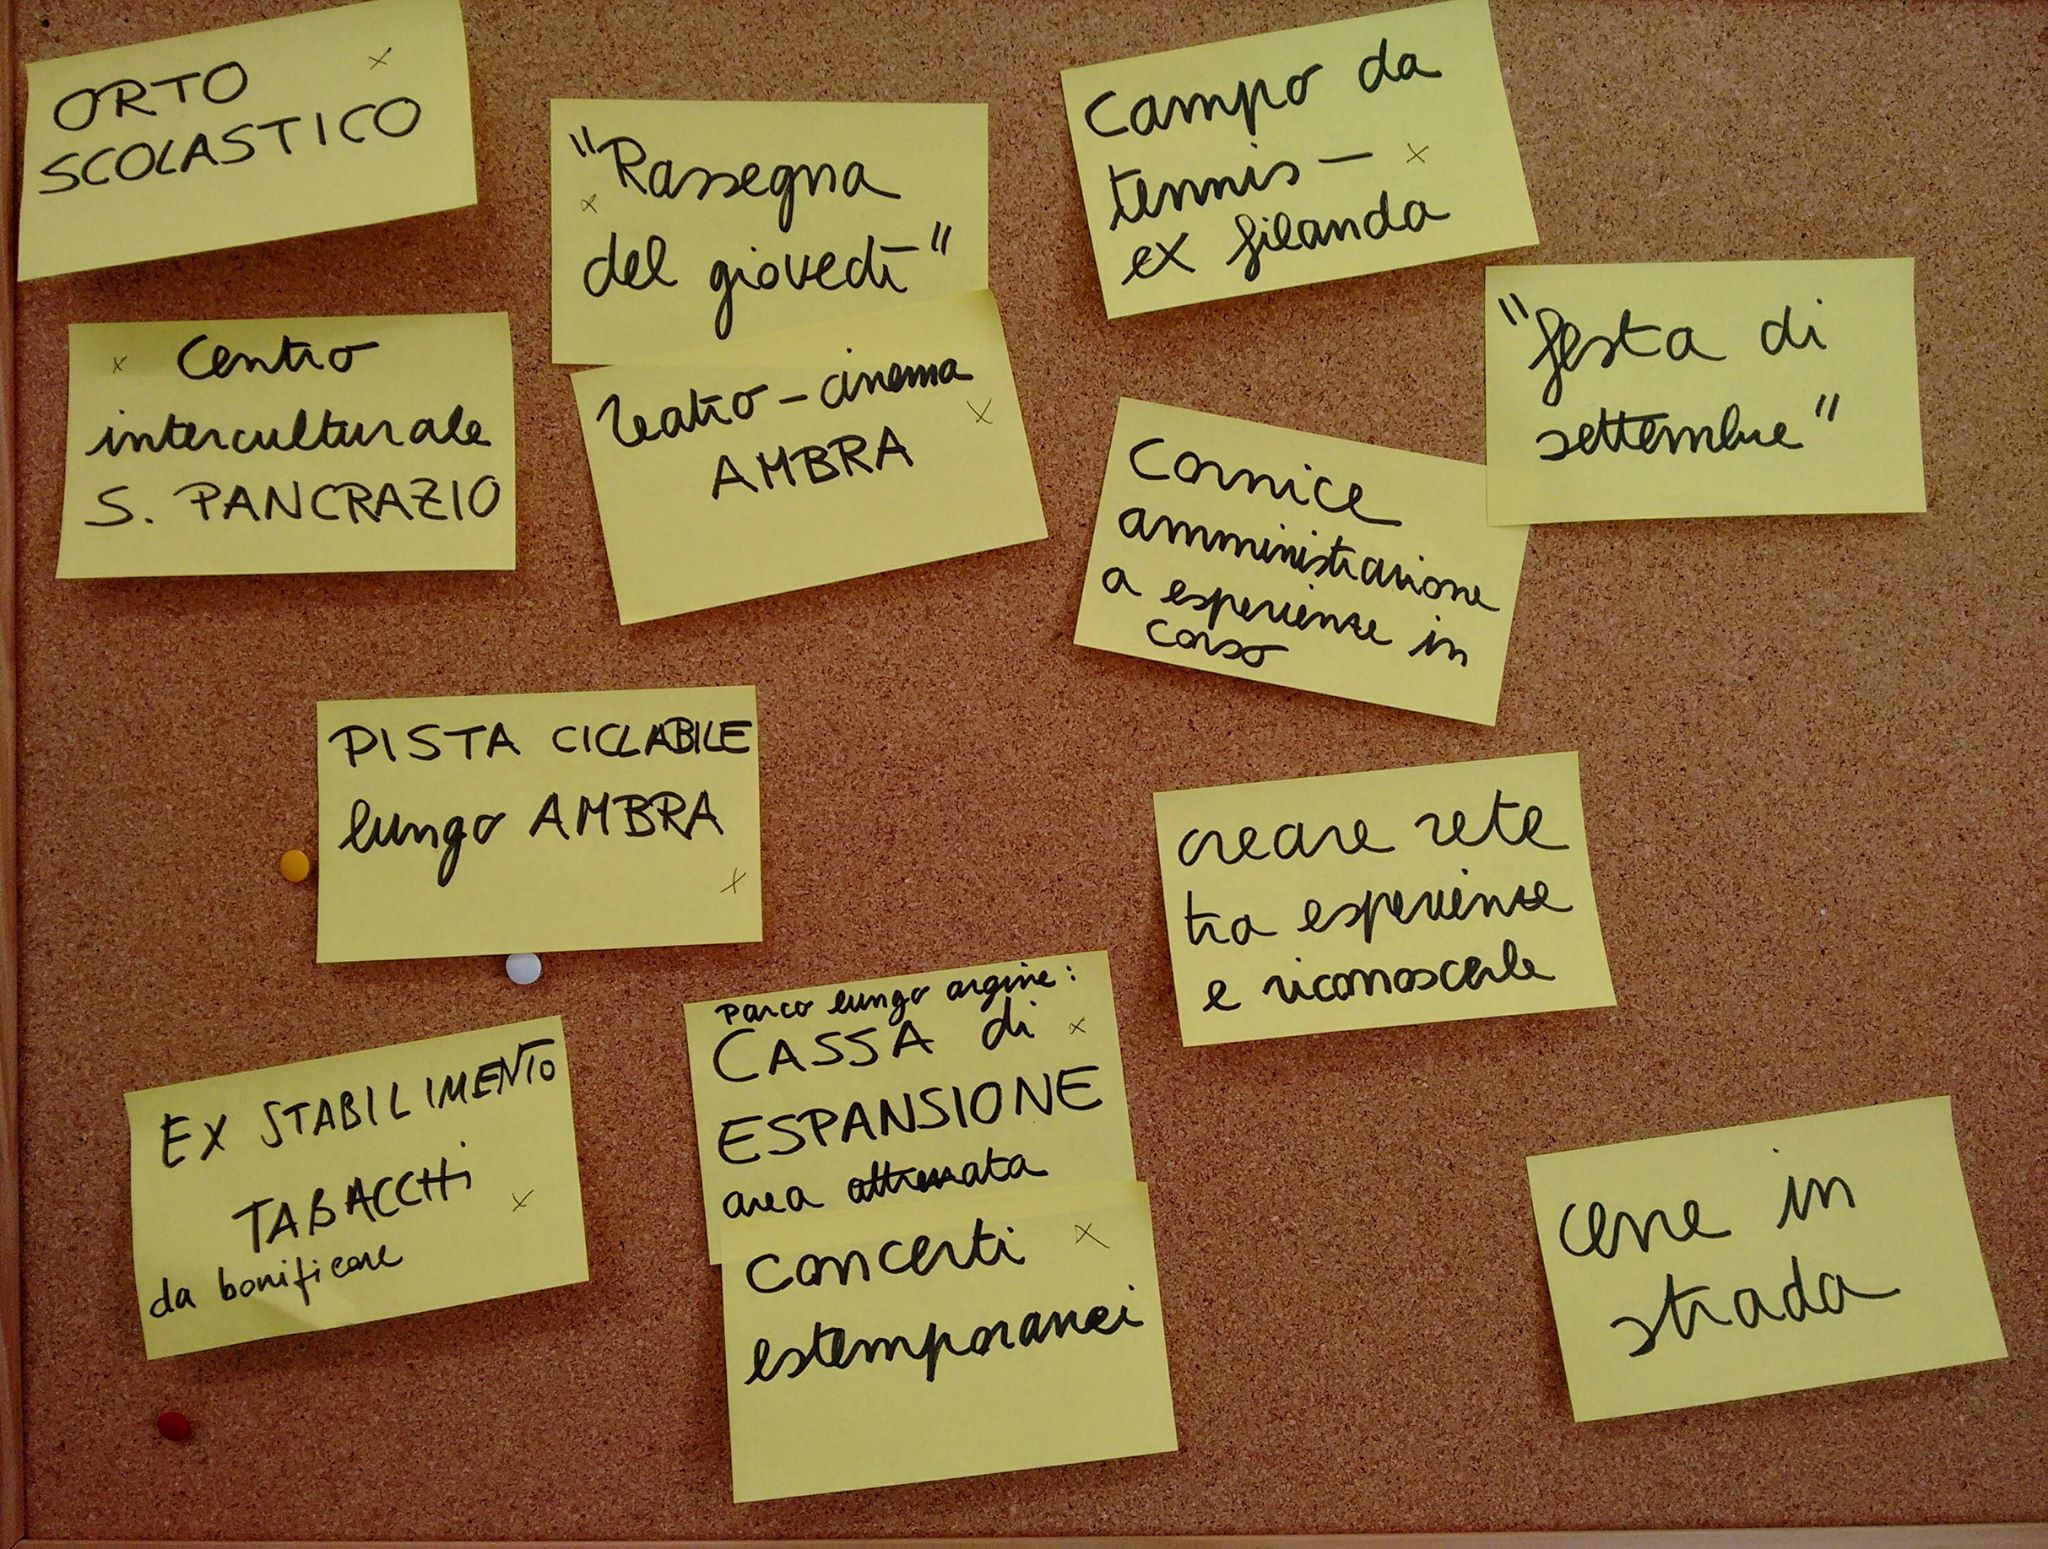 ORTO
SCOLASTICO
"Rassegna
del giovedì"
Campo da
tennis –
ex filanda
"festa di
settembre"
Centro
interculturale
S. PANCRAZIO
teatro – cinema
AMBRA
Cornice
amministrazione
a esperienze in
corso
PISTA CICLABILE
lungo AMBRA
creare rete
tra esperienze
e riconoscerle
Parco lungo argine:
CASSA di
ESPANSIONE
area attrezzata
EX STABILIMENTO
TABACCHi
da bonificare
concerti
estemporanei
cene in
strada